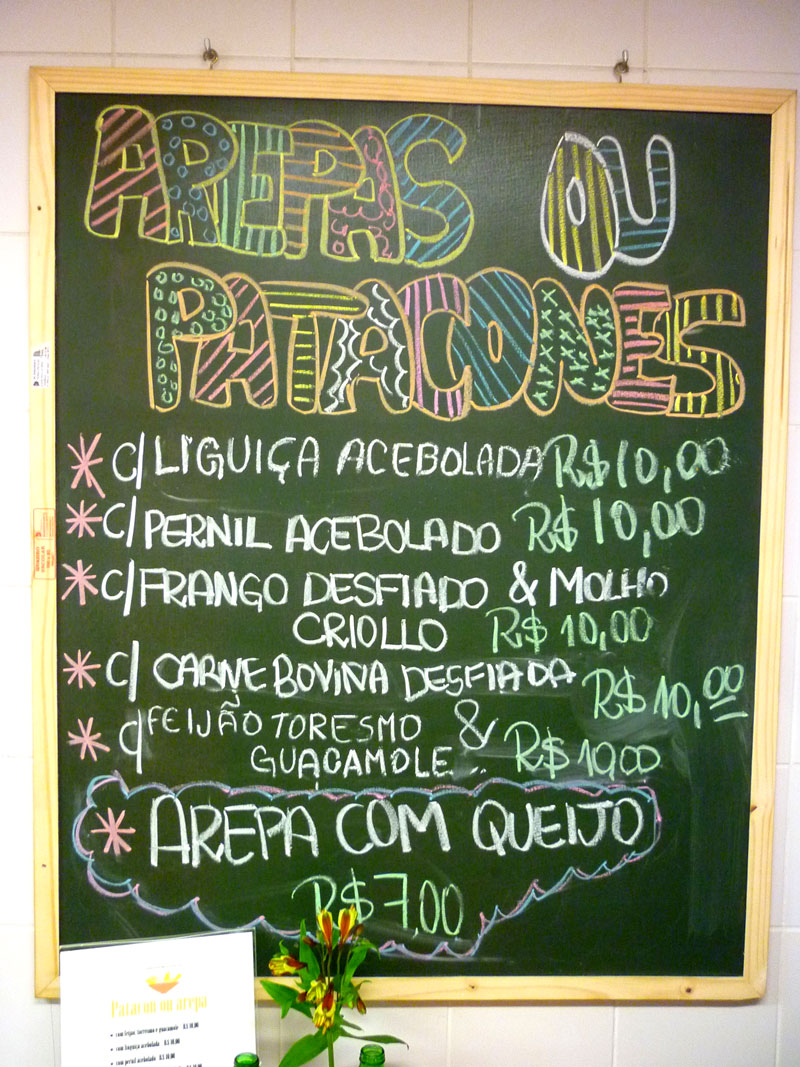 AREPAS OU
PATACONES
* C/ LIGUIÇA ACEBOLADA R$10,00
* C/ PERNIL ACEBOLADO R$10,00
* C/ FRANGO DESFIADO & MOLHO
CRIOLLO R$10,00
* C/ CARNE BOVINA DESFIADA R$10,00
* C/ FEIJÃO TORESMO &
GUAÇAMOLE.. R$10,00
* AREPA COM QUEIJO
R$7,00
Patacon ou arepa
• com feijao, torresmo e guacamole R$ 10,00
• com linguiça acebolada R$ 10,00
• com pernil acebolado R$ 10,00